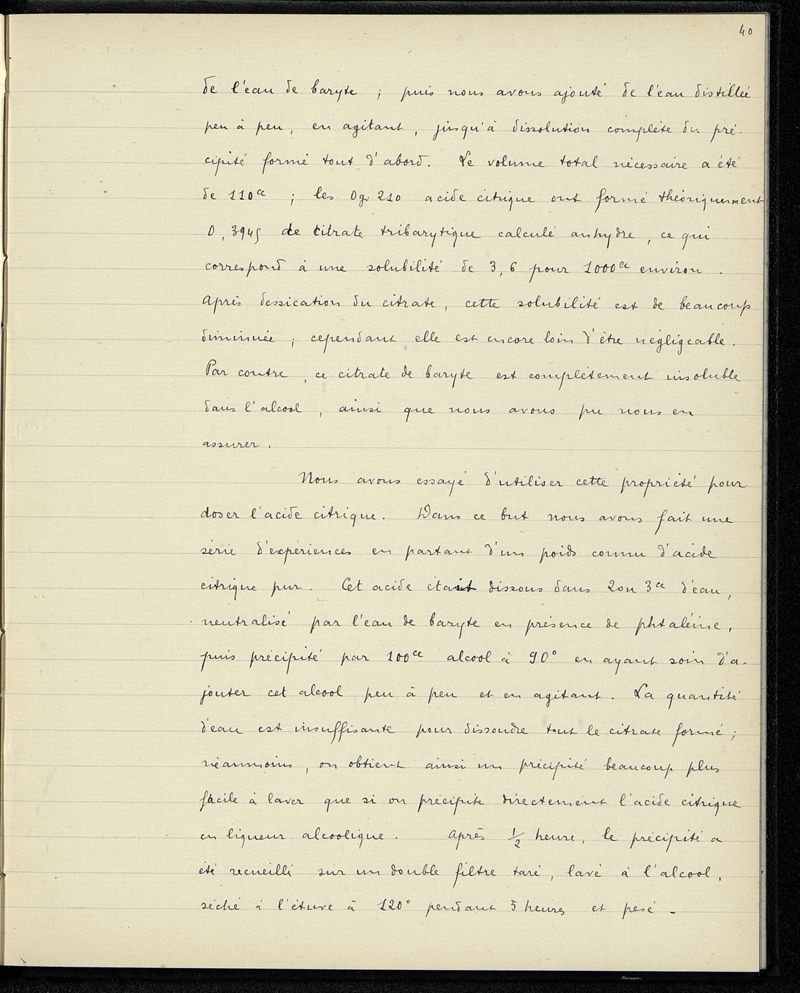 40
de l'eau de baryte ; puis nous avons ajouté de l'eau distillée
peu à peu, en agitant, jusqu'à dissolution complète du pré-
cipité formé tout d'abord. Le volume total nécessaire a été
de 110cc ; les 0gr 210 acide citrique ont formé théoriquement
0,3945 de citrate tribarytique calculé anhydre, ce qui
correspond à une solubilité de 3,6 pour 1000cc environ.
Après dessication du citrate, cette solubilité est de beaucoup
diminuée ; cependant elle est encore loin d'être négligeable.
Par contre, ce citrate de baryte est complètement insoluble
dans l'alcool, ainsi que nous avons pu nous en
assurer.
Nous avons essayé d'utiliser cette propriété pour
doser l'acide citrique. Dans ce but nous avons fait une
série d'expériences en partant d'un poids connu d'acide
citrique pur. Cet acide était dissous dans 2 ou 3cc d'eau,
neutralisé par l'eau de baryte en présence de phtaléine,
puis précipité par 100cc alcool à 90° en ayant soin d'a-
jouter cet alcool peu à peu et en agitant. La quantité
d'eau est insuffisante pour dissoudre tout le citrate formé ;
néanmoins, on obtient ainsi un précipité beaucoup plus
facile à laver que si on précipite directement l'acide citrique
en liqueur alcoolique. Après 1/2 heure, le précipité a
été recueilli sur un double filtre taré, lavé à l'alcool,
séché à l'étuve à 120° pendant 5 heures et pesé -